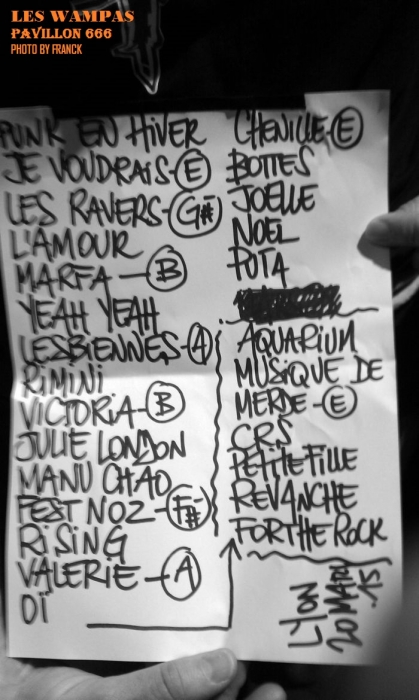 LES WAMPAS
PAVILLON 666
PHOTO BY FRANCK
PUNK EN HIVER
JE VOUDRAIS-E
LES RAVERS-G#
L'AMOUR
MARFA-B
YEAH YEAH
LESBIENNES-A
RIMINI
VICTORIA-B
JULIE LONDON
MANU CHAO
FEST NOZ-F#
RISING
VALERIE-A
OÏ
CHENILLE-E
BOTTES
JOELLE
NOEL
PUTA
AQUARIUM
MUSIQUE DE
MERDE-E
CRS
PETITE FILLE
REVANCHE
FOR THE ROCK
LYON
20 MARS
.15